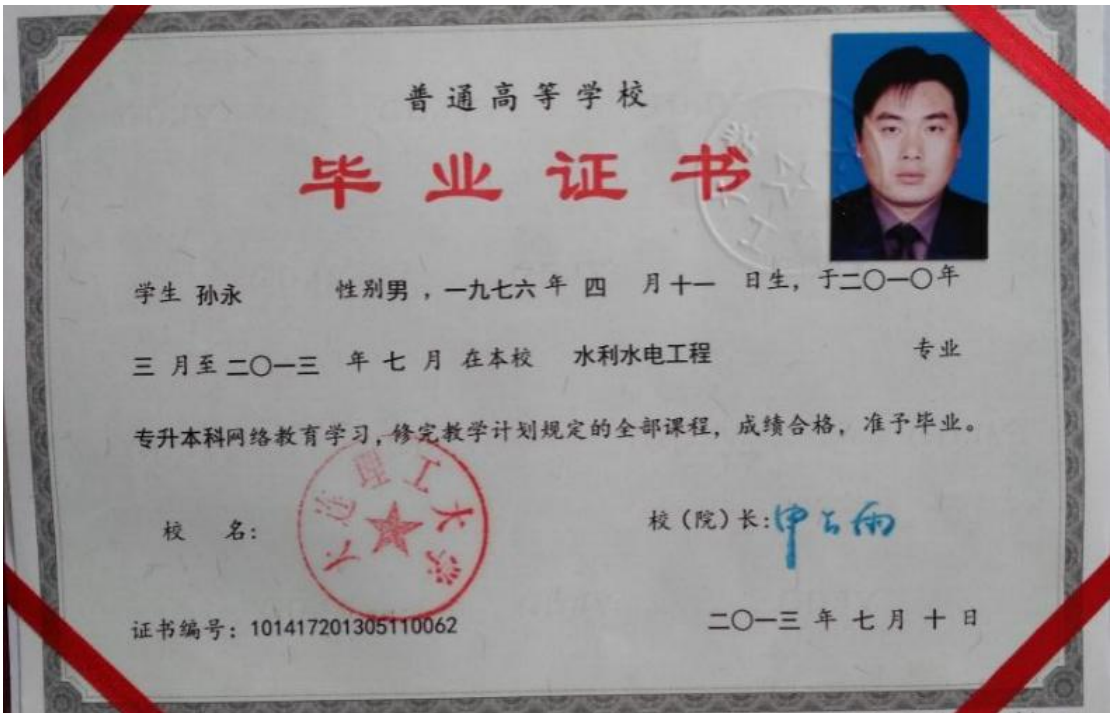 普通高等学校
毕业证书
学生 孙永 性别男，一九七六年 四 月十一 日生，于二〇一〇年
三 月至二〇一三 年 七 月 在本校 水利水电工程 专业
专升本科网络教育学习，修完教学计划规定的全部课程，成绩合格，准予毕业。
校 名：
大连理工大学
校（院）长：申长雨
证书编号：101417201305110062
二〇一三 年 七 月 十 日